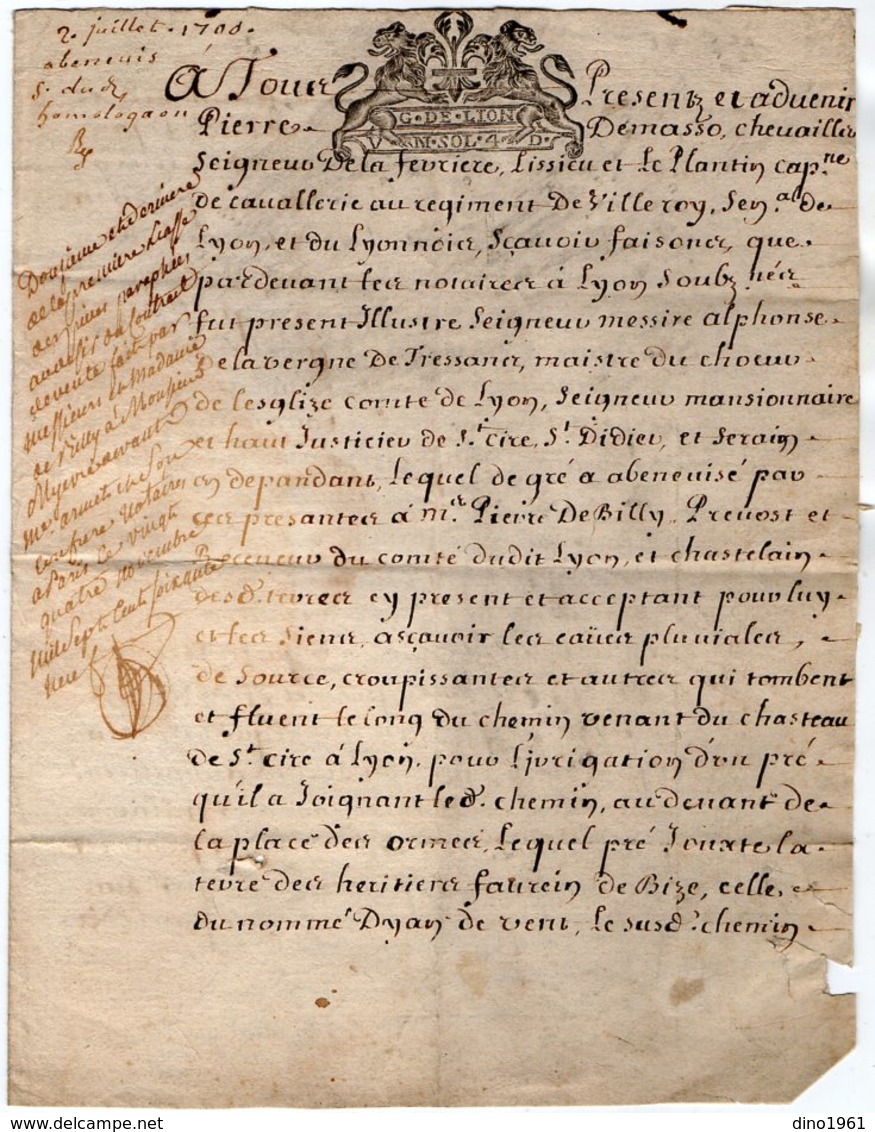 2. juillet. 1700.
abenevis
Sr. du d.
homologaon
A Tous Presentz et aduenir
G. DE. LION
V N. SOL. 4. D.
Pierre Demasso, cheuallier
Seigneur De la ferriere, Lissieu et Le Plantin cap.ne
de cauallerie au regiment De Villeroy, Sen.al de
Lyon, et du Lyonnois, Sçauoir faisons, que
pardeuant les notaires à Lyon Soubz.nés
fut present Illustre Seigneur messire alphonse
De la vergne De Tressans, maistre du choeur
de Lesglize comte de Lyon, Seigneur mansionnaire
et haut Justicier de St. cire, St. Didier, et Serain
en dependant, Lequel de gré a abeneuisé par
ces presantes à mr. Pierre De Billy, Preuost et
receueur du comté dudit Lyon, et chastelain
desd. terres cy present et acceptant pour luy
et les Siens, asçauoir les eaües pluuiales,
de Source, croupissantes et autres qui tombent
et fluent le long du chemin venant du chasteau
de St. cire à Lyon, pour L'jrrigation d'un pré
qu'il a Joignant led. chemin, au deuant de
La place des ormes, Lequel pré Jouxte la
terre des heritiers faurein de Bize, celle
du nommé Dyan de vent, Le susd. chemin
Douzieme et derniere
de la premiere Liasse
des pieces paraphées
au desir du Contract
de vente fait par
Messieurs et Madame
de Billy à Monsieur
devant
Me. armet & Son
Confrere Notaires
a Paris le vingt
quatre novembre
Mil Sept Cent Soixante
dino1961